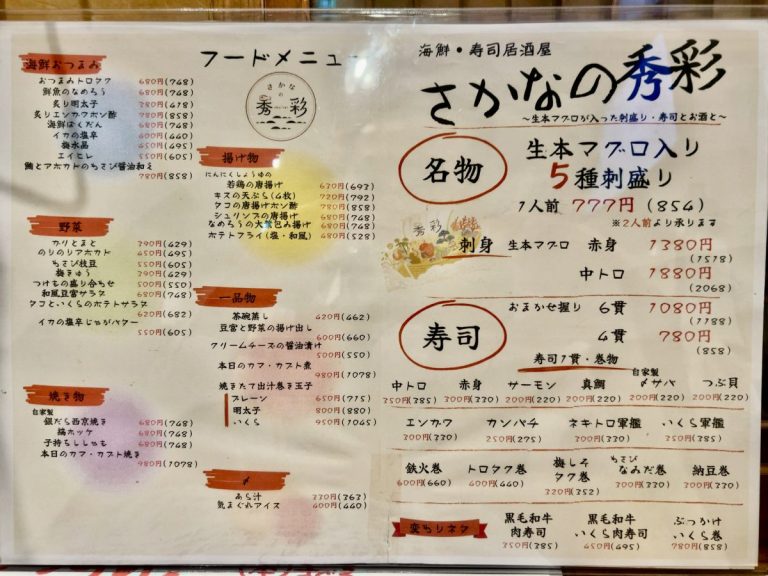 フードメニュー
さかなの秀彩
海鮮おつまみ
おつまみトロタク 680円(748)
鮮魚のなめろう 680円(748)
炙り明太子 380円(418)
炙りエンガワポン酢 780円(858)
海鮮ばくだん 680円(748)
イカの塩辛 400円(440)
梅水晶 450円(495)
エイヒレ 550円(605)
鮪とアボカドのわさび醤油和え
780円(858)
野菜
カリとまと 390円(429)
のりのりアボカド 450円(495)
わさび枝豆 550円(605)
梅きゅう
つけもの盛り合わせ 500円(550)
和風豆富サラダ
タコといくらのポテトサラダ
620円(682)
イカの塩辛じゃがバター
550円(605)
焼き物
自家製
銀だら西京焼き 680円(748)
縞ホッケ 680円(748)
子持ちししゃも
本日のカマ・カブト焼き
980円(1078)
揚げ物
にんにくしょうゆの
若鶏の唐揚げ 630円(693)
キスの天ぷら(4枚) 720円(792)
タコの唐揚げポン酢 780円(858)
シュリンプの唐揚げ 680円(748)
なめろうの大葉包み揚げ 680円(748)
ポテトフライ(塩・和風) 480円(528)
一品物
茶碗蒸し 420円(462)
豆富と野菜の揚げ出し
600円(660)
クリームチーズの醤油漬け
500円(550)
本日のカマ・カブト煮
980円(1078)
焼きたて出汁巻き玉子
プレーン 650円(715)
明太子 800円(880)
いくら 950円(1045)
〆
あら汁 330円(363)
気まぐれアイス 400円(440)
海鮮・寿司居酒屋
さかなの秀彩
〜生本マグロが入った刺盛り・寿司とお酒と〜
名物
生本マグロ入り
5種刺盛り
1人前 777円(854)
※2人前より承ります
刺身 生本マグロ 赤身 1380円
(1518)
中トロ 1880円
(2068)
寿司
おまかせ握り 6貫 1080円
(1188)
4貫 780円
(858)
寿司1貫・巻物
中トロ 赤身 サーモン 真鯛 自家製〆サバ つぶ貝
350円(385) 300円(330) 200円(220) 200円(220) 200円(220) 200円(220)
エンガワ カンパチ ネギトロ軍艦 いくら軍艦
300円(330) 250円(275) 300円(330) 350円(385)
鉄火巻 トロタク巻 梅しそタク巻 わさびなみだ巻 納豆巻
600円(660) 400円(440) 320円(352) 300円(330) 300円(330)
変わりネタ
黒毛和牛肉寿司 黒毛和牛いくら肉寿司 ぶっかけいくら巻
350円(385) 450円(495) 780円(858)